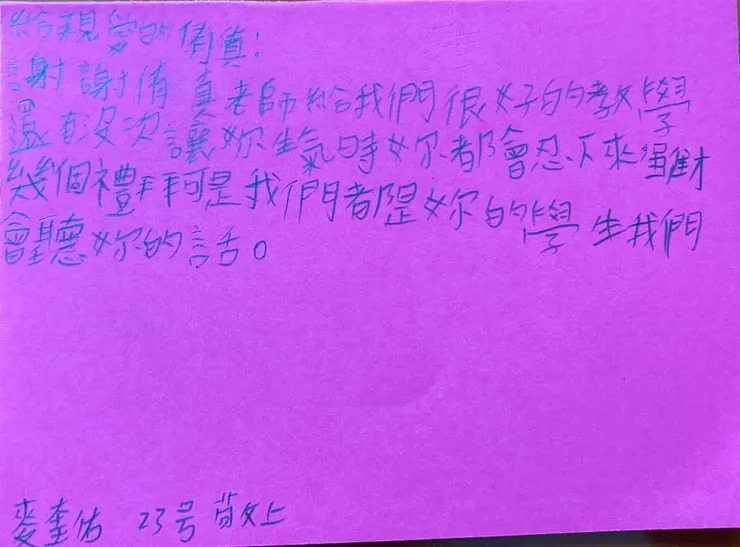 給親愛的倩真：
謝謝倩真老師給我們很好的教學
還有沒次讓妳生氣時妳都會忍下來雖才
幾個禮拜可是我們都是妳的學生我們
會聽妳的話。
麥奎佑 23号 敬上